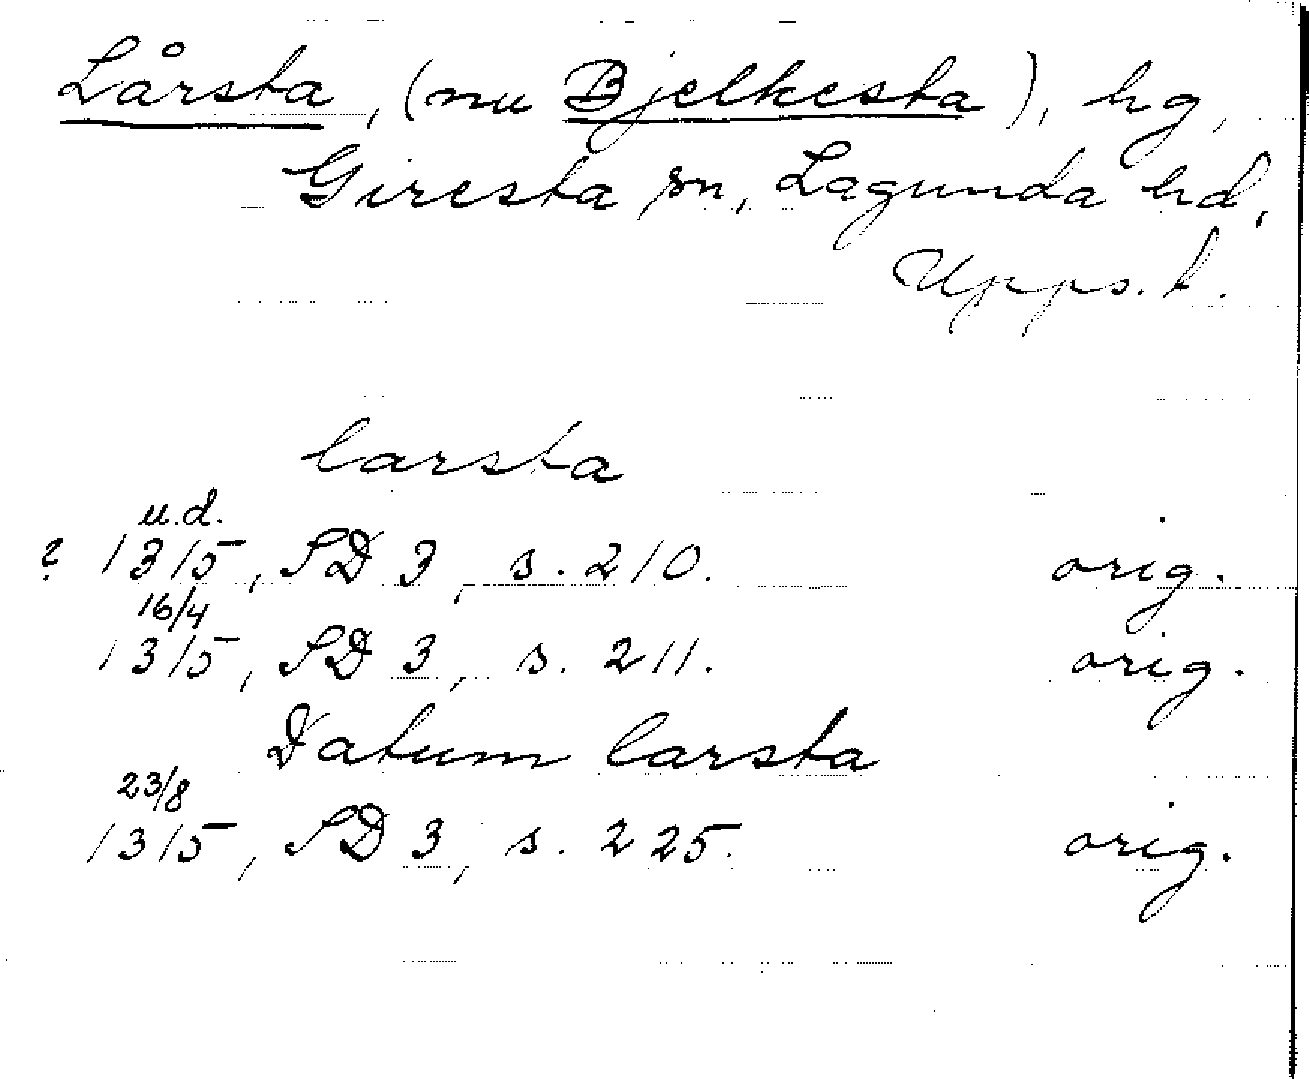 Lårsta, (nu Bjelkesta), hg,
Giresta sn, Lagunda hd,
Upps. l.
larsta
u.d.
? 1315, SD 3, s. 210. orig.
16/4
1315, SD 3, s. 211. orig.
Datum larsta
23/8
1315, SD 3, s. 225. orig.